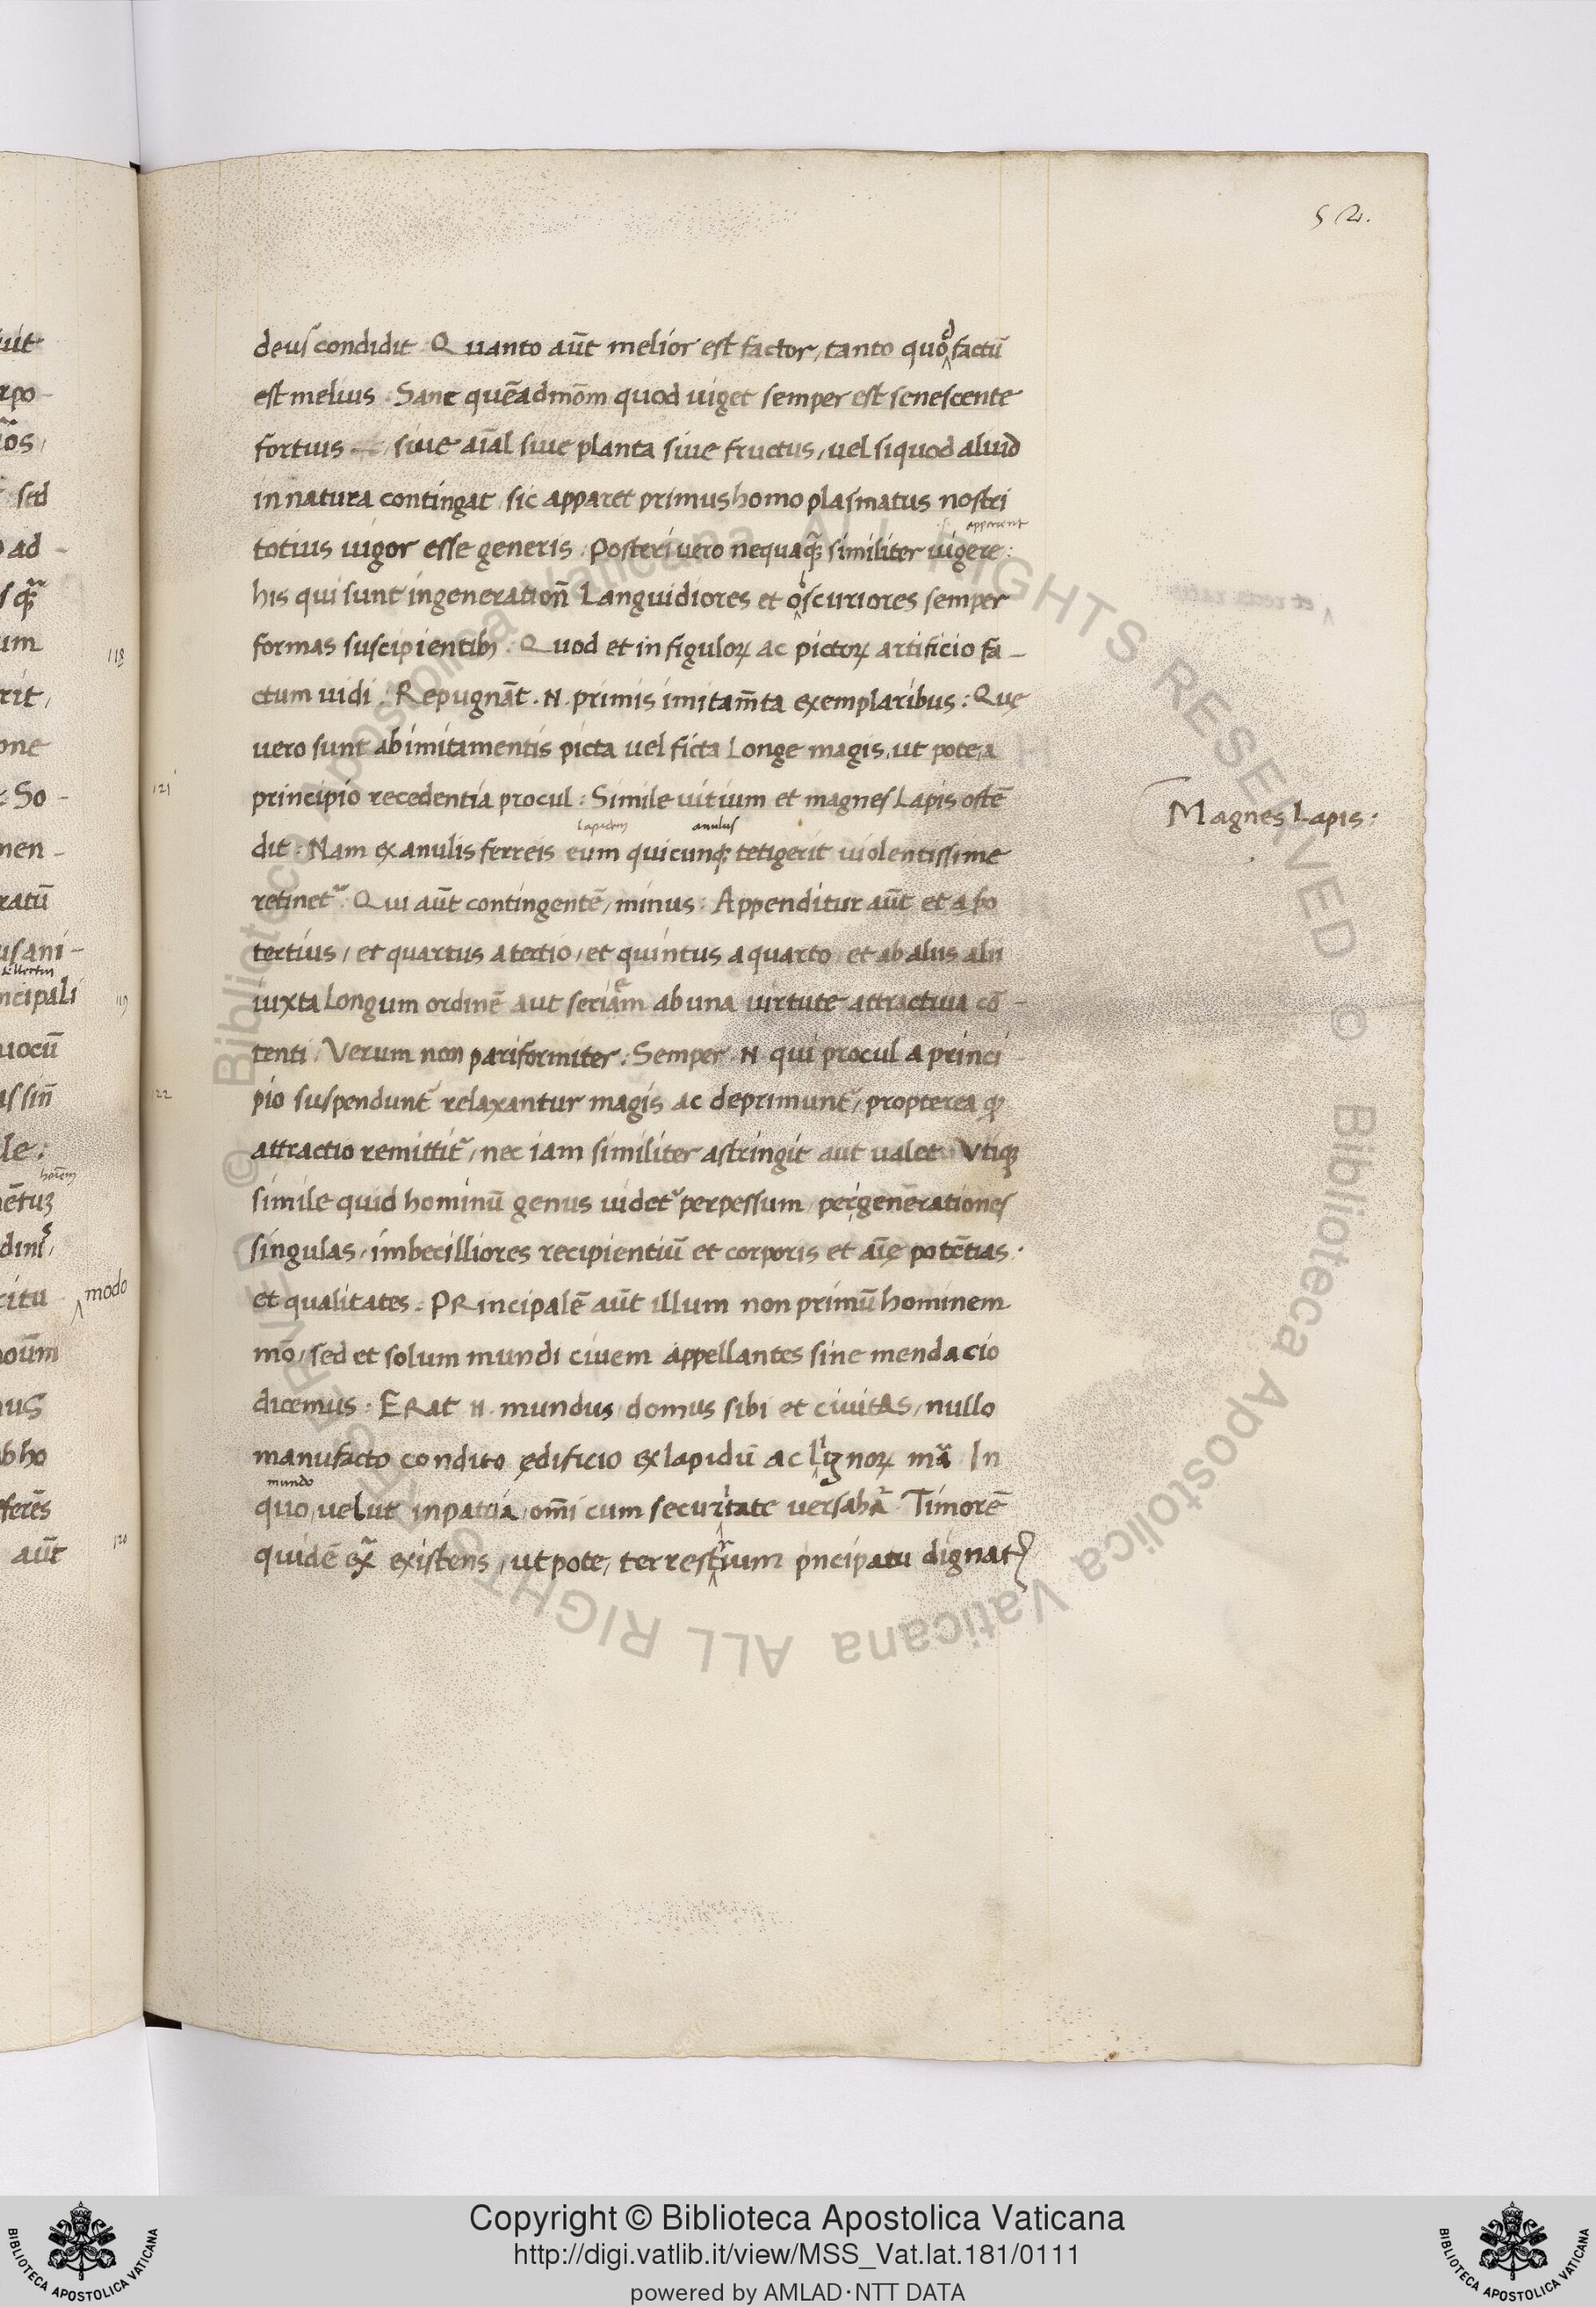 52.
deus condidit. Quanto aūt melior est factor, tanto quod factū
est melius. Sane quēadmōm quod uiget semper est senescente
fortius siue aīal siue planta siue fructus, uel siquod aliud
in natura contingat, sic apparet primus homo plasmatus nostri
apparent
totius uigor esse generis. Posteri uero nequaqꝫ similiter uigere:
his qui sunt in generatioñ Languidiores et obscuriores semper
formas suscipientibꝫ. Quod et in figuloꝝ ac pictoꝝ artificio fa-
ctum uidi. Repugnāt .N. primis imitam̄ta exemplaribus: Quę
uero sunt ab imitamentis picta uel ficta Longe magis, ut pote, a
121
principio recedentia procul: Simile uitium et magnes Lapis ostē
Magnes Lapis:
lapidem anulus
dit: Nam ex anulis ferreis eum quicunqꝫ tetigerit uiolentissime
retinet᷑. Qui aūt contingentē, minus: Appenditur aūt et a ſ͞o
tertius, et quartus a tertio, et quintus a quarto, et ab aliis alii
iuxta Longum ordinē aut seriem ab una uirtute attractiua cō-
tenti. Verum non pariformiter: Semper .N. qui procul a princi
122
pio suspendunt᷑ relaxantur magis ac deprimunt᷑, propterea qꝫ
attractio remittit᷑, nec iam similiter astringit aut ualet. Vtiqꝫ
simile quid hominū genus uidet᷑ perpessum, per generationes
singulas, imbecilliores recipientiū et corporis et aīę potētias.
et qualitates: PRincipalē aūt illum non primū hominem
mō, sed et solum mundi ciuem appellantes sine mendacio
dicemus. ERat .N. mundus domus sibi et ciuitas, nullo
manufacto condito ędificio ex lapidū ac lignoꝝ mā. In
mundo
quo, uelut in patria, om̄i cum securitate uersabat᷑. Timorē
quidē ex᷑ existens, ut pote, terrestrium pncipatu dignat᷑
118
119
120
modo
Copyright © Biblioteca Apostolica Vaticana
http://digi.vatlib.it/view/MSS_Vat.lat.181/0111
powered by AMLAD·NTT DATA
BIBLIOTECA APOSTOLICA VATICANA
BIBLIOTECA APOSTOLICA VATICANA